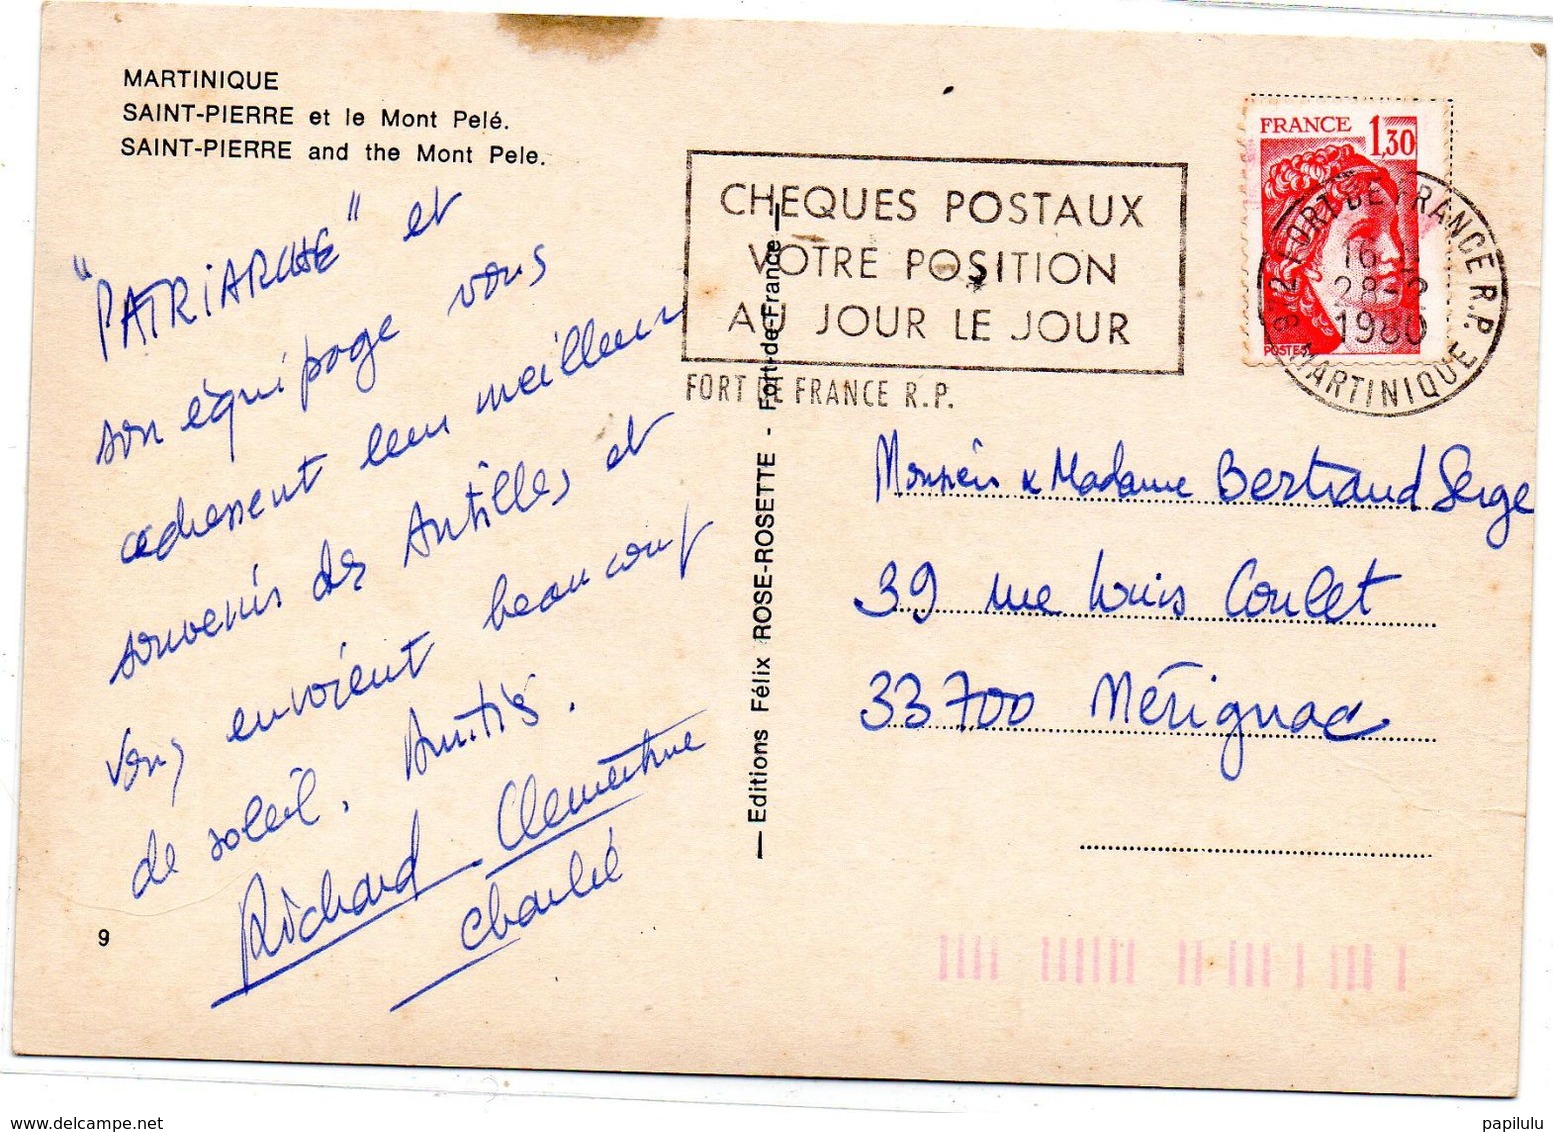 MARTINIQUE
SAINT-PIERRE et le Mont Pelé.
SAINT-PIERRE and the Mont Pele.
"PATRIARCHE" et
son équipage vous
adressent leur meilleur
souvenirs des Antilles et
vous envoient beaucoup
de soleil. Amitiés.
Richard Clementine
Charlie
9
Editions Félix ROSE-ROSETTE - Fort-de-France
CHEQUES POSTAUX
VOTRE POSITION
AU JOUR LE JOUR
FORT DE FRANCE R.P.
FRANCE 1,30
POSTES
972 FORT DE FRANCE R.P.
16 H
28-2
1980
MARTINIQUE
Monsieur & Madame Bertrand Serge
39 rue Louis Coulet
33700 Mérignac
papilulu